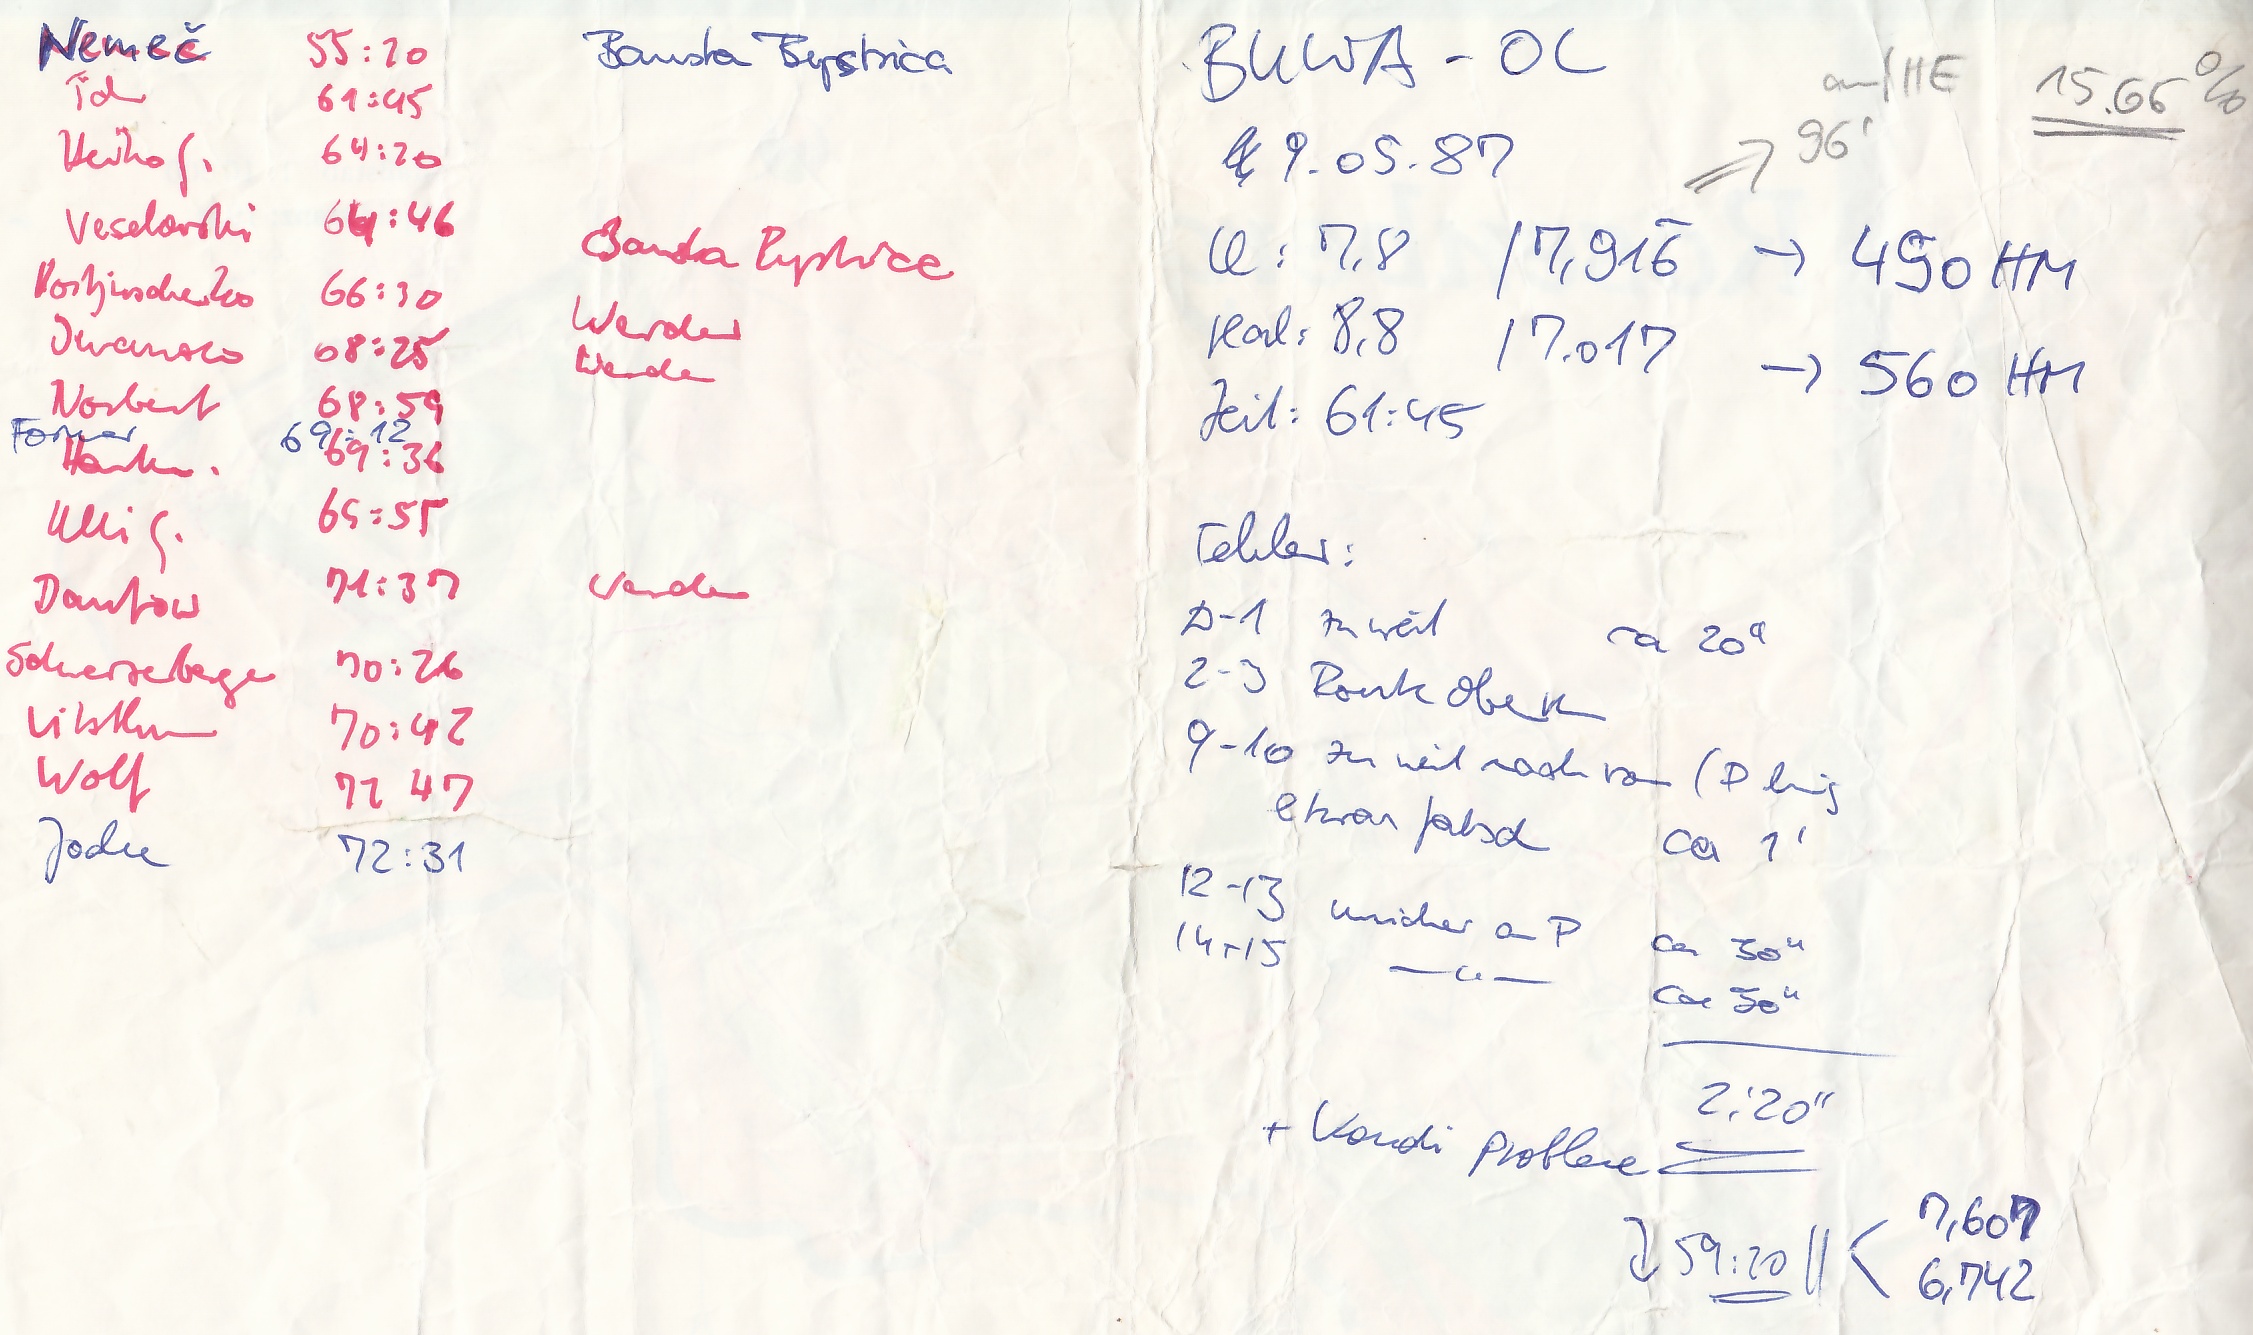 Nemeč 55:20 Banska Bystrica
Ich 61:45
Heiko G. 64:20
Veselovski 64:46 Banska Bystrica
66:30
Iwansko 68:25 Werder
Norbert 68:59 Werder
Forner 69:12
Hankn. 69:36
Ulli G. 69:55
Dantow 71:37 Werder
Scherzeberger 70:26
Vitsthum 70:42
Wolf 72 47
Jodu 72:31
BUWA - OL
9.05.87
auf HE 15.66%
⇒ 96'
Ll: 7,8 / 7,916 → 490 HM
real: 8,8 / 7.017 → 560 HM
Zeit: 61:45
Fehler:
D-1 zu weit ca 20"
2-3 Route oben
9-10 zu weit nach vorn (P hing
etwas falsch ca 1'
12-13 unsicher am P ca 30"
14+15 —"— ca 30"
2:20"
+ Kondi probleme
↓ 59:20 || < 7,607
6,742